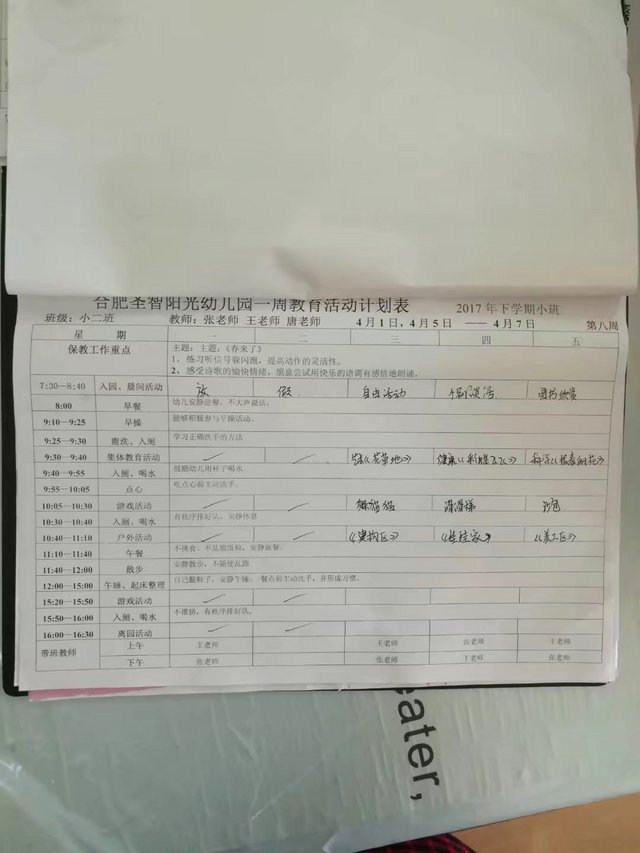 合肥圣智阳光幼儿园一周教育活动计划表
班级：小二班 教师：张老师 王老师 唐老师 4月1日，4月5日 ——4月7日 2017年下学期小班 第八周
星 期 二 三 四 五
保教工作重点 主题：主题：《春来了》
1、练习听信号躲闪跑，提高动作的灵活性。
2、感受诗歌的愉快情绪，愿意尝试用快乐的语调有感情地朗诵。
7:30—8:40 入园、晨间活动 放 假 自由活动 个别谈话 图书欣赏
8:00 早餐 幼儿安静进餐、不大声说话。
9:10—9:25 早操 能够积极参与早操活动。
9:25—9:30 盥洗、入厕 学习正确洗手的方法
9:30—9:40 集体教育活动
9:40—9:55 入厕、喝水 鼓励幼儿用杯子喝水
9:55—10:05 点心 吃点心前主动洗手。
10:05—10:30 游戏活动 滑滑梯 沙包
10:30—10:40 入厕、喝水 有秩序排好队，安静休息
10:40—11:10 户外活动 《建构区》 《娃娃家》 《美工区》
11:10—11:40 午餐 不挑食、不乱撒饭粒，安静就餐。
11:40—12:00 散步 安静散步，不随便乱跑
12:00—15:00 午睡、起床整理 自己脱鞋子，安静午睡。餐点前主动洗手，并形成习惯。
15:20—15:50 游戏活动
15:50—16:00 入厕、喝水 不推挤，有秩序排好队。
16:00—16:30 离园活动
带班教师 上午 王老师 王老师 张老师 王老师
下午 张老师 张老师 王老师 张老师
eater,